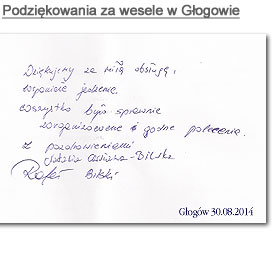 Podziękowania za wesele w Głogowie
Dziękujemy za miłą obsługę,
wspaniałe jedzenie.
Wszystko było sprawnie
zorganizowane i godne polecenia.
Z pozdrowieniami
Bilska
Rafał Bilski
Głogów 30.08.2014